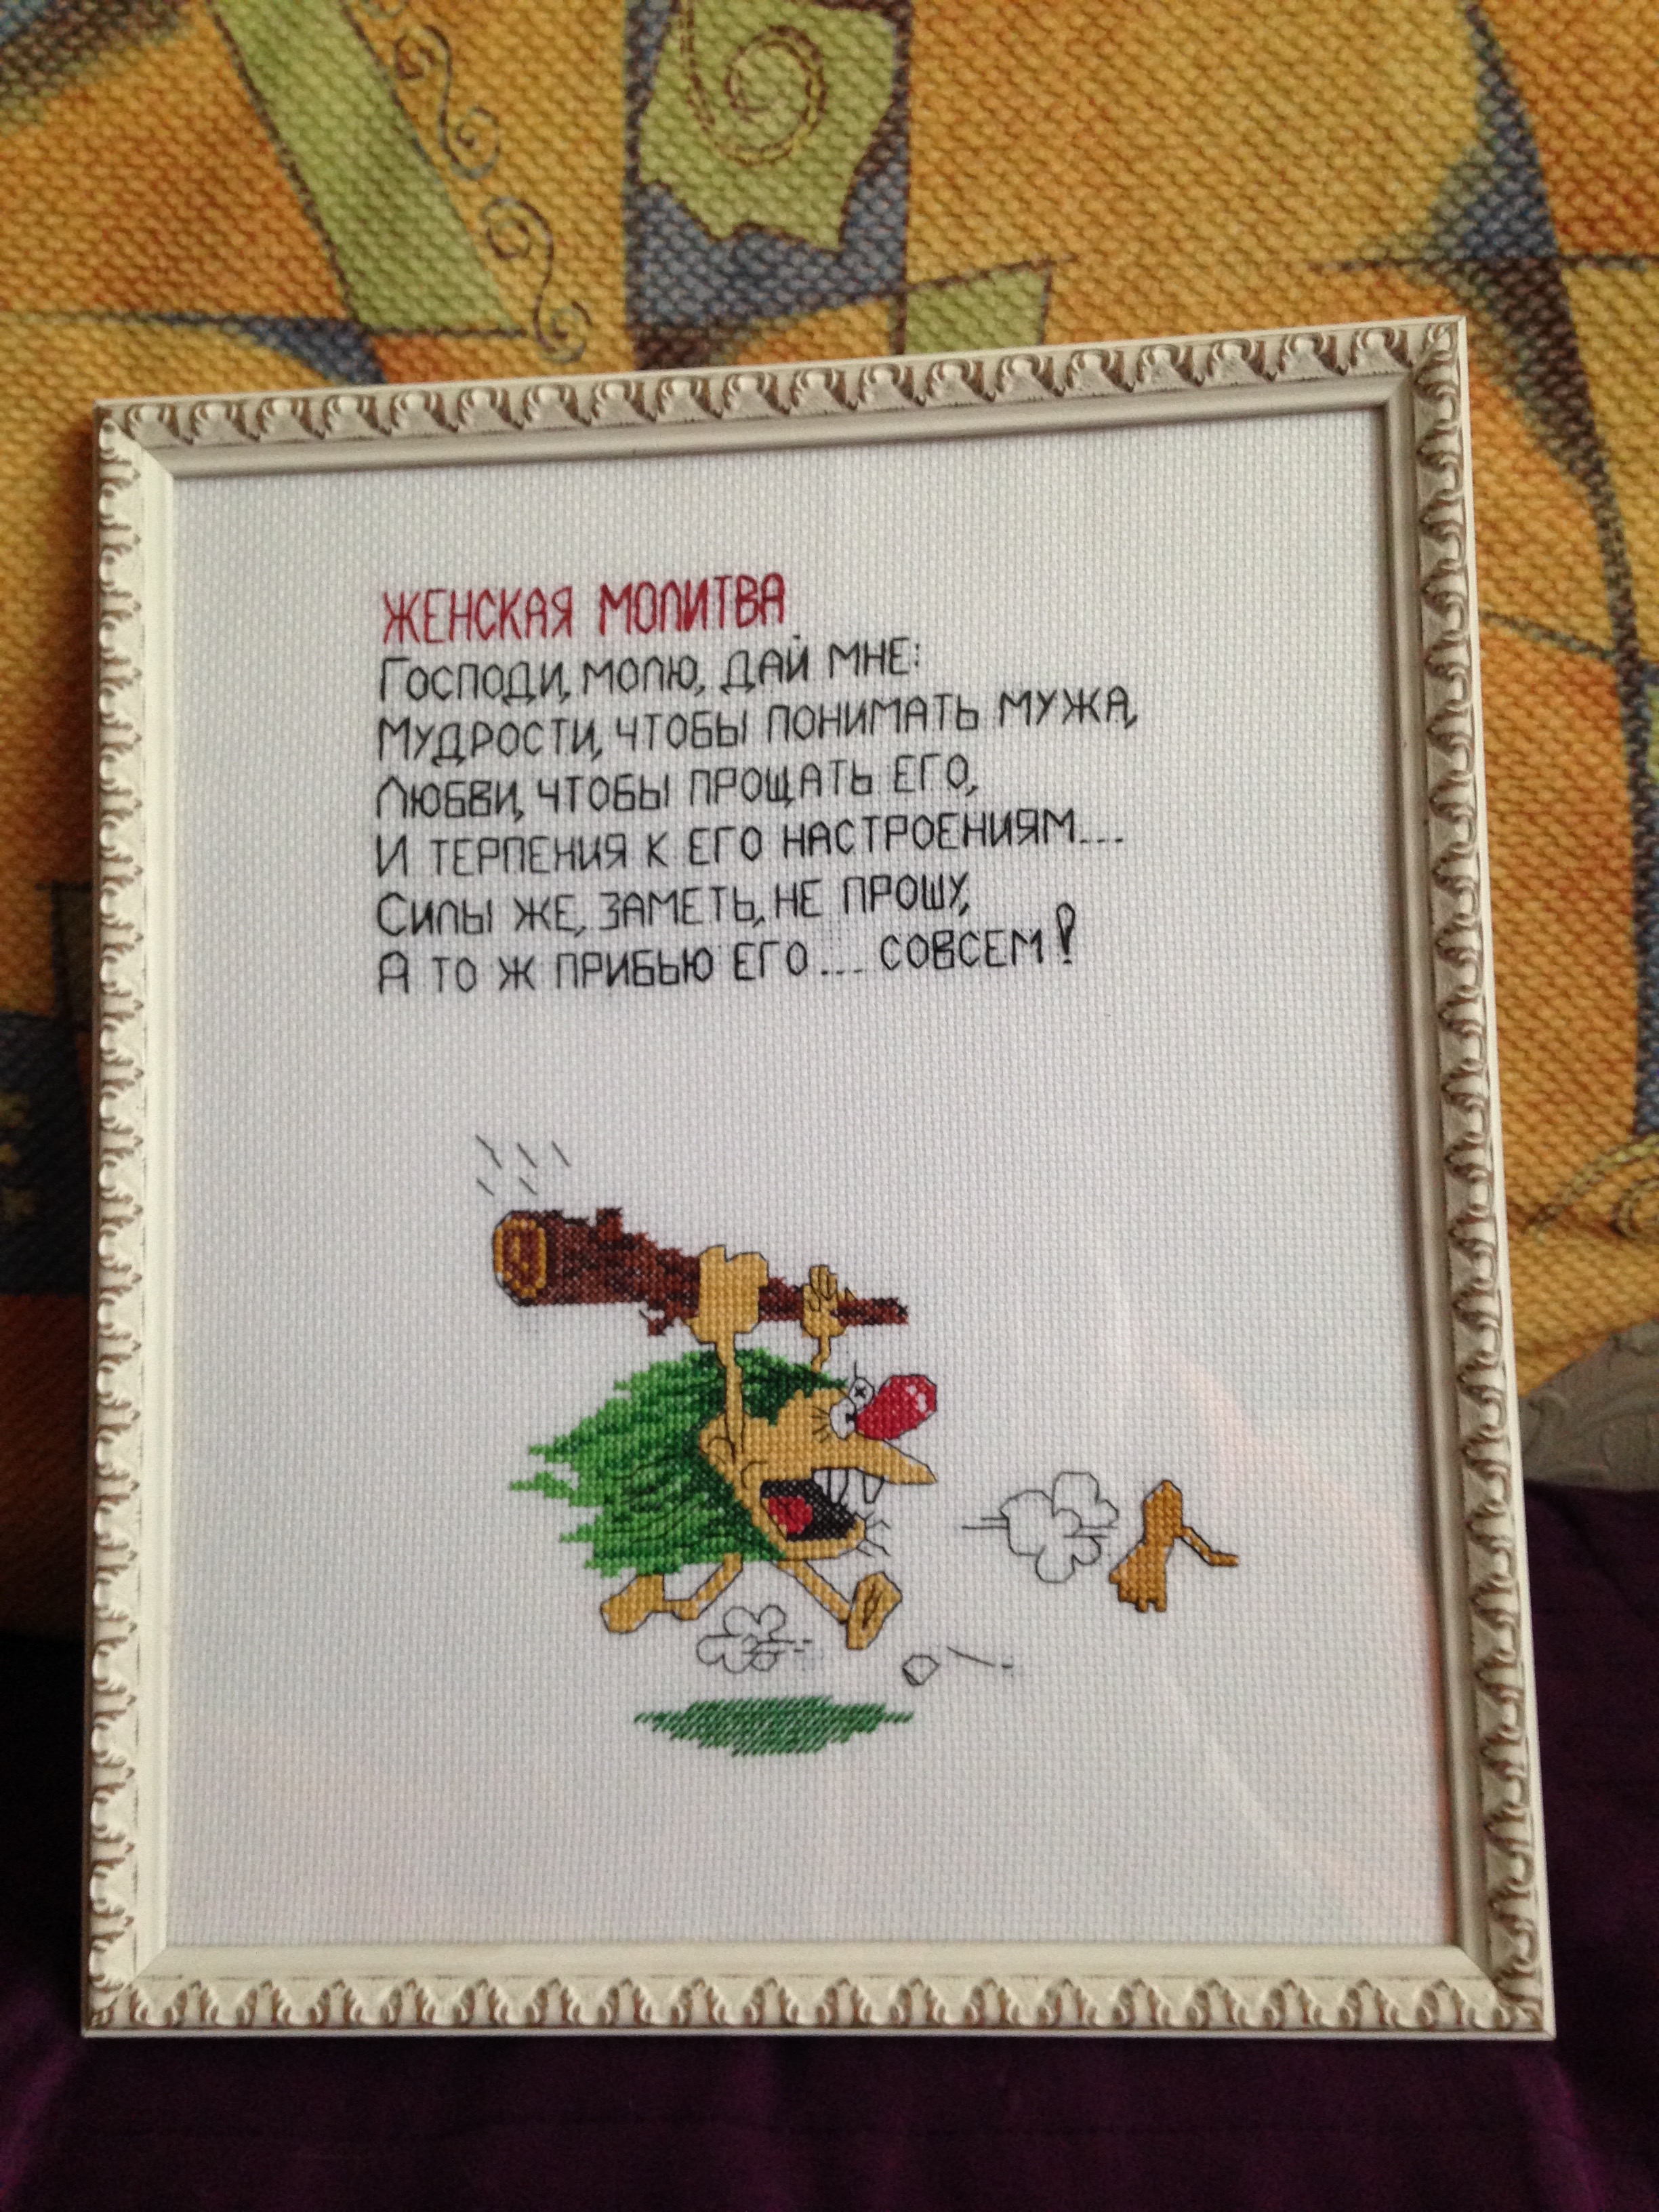 ЖЕНСКАЯ МОЛИТВА
Господи, молю, дай мне:
Мудрости, чтобы понимать мужа,
Любви, чтобы прощать его,
И терпения к его настроениям...
Силы же, заметь, не прошу,
А то ж прибью его... совсем!